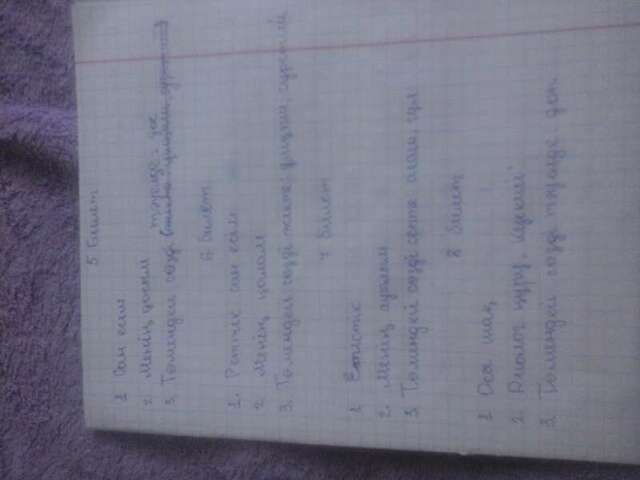 5 билет
1 Сан есім
2. Менің досым
тәуелде: дос
3. Төмендегі сөзді
6 билет
1. Реттік сан есім
2. Менің қалам
3. Төмендегі сөзді жікте:
7 билет
1 Етістік
2. Менің ауылым
3. Төмендегі сөзді септе: ағаш, гүл
8 билет
1 Осы шақ
2. Диалог құру.
3. Төмендегі сөзді тәуелде: доп